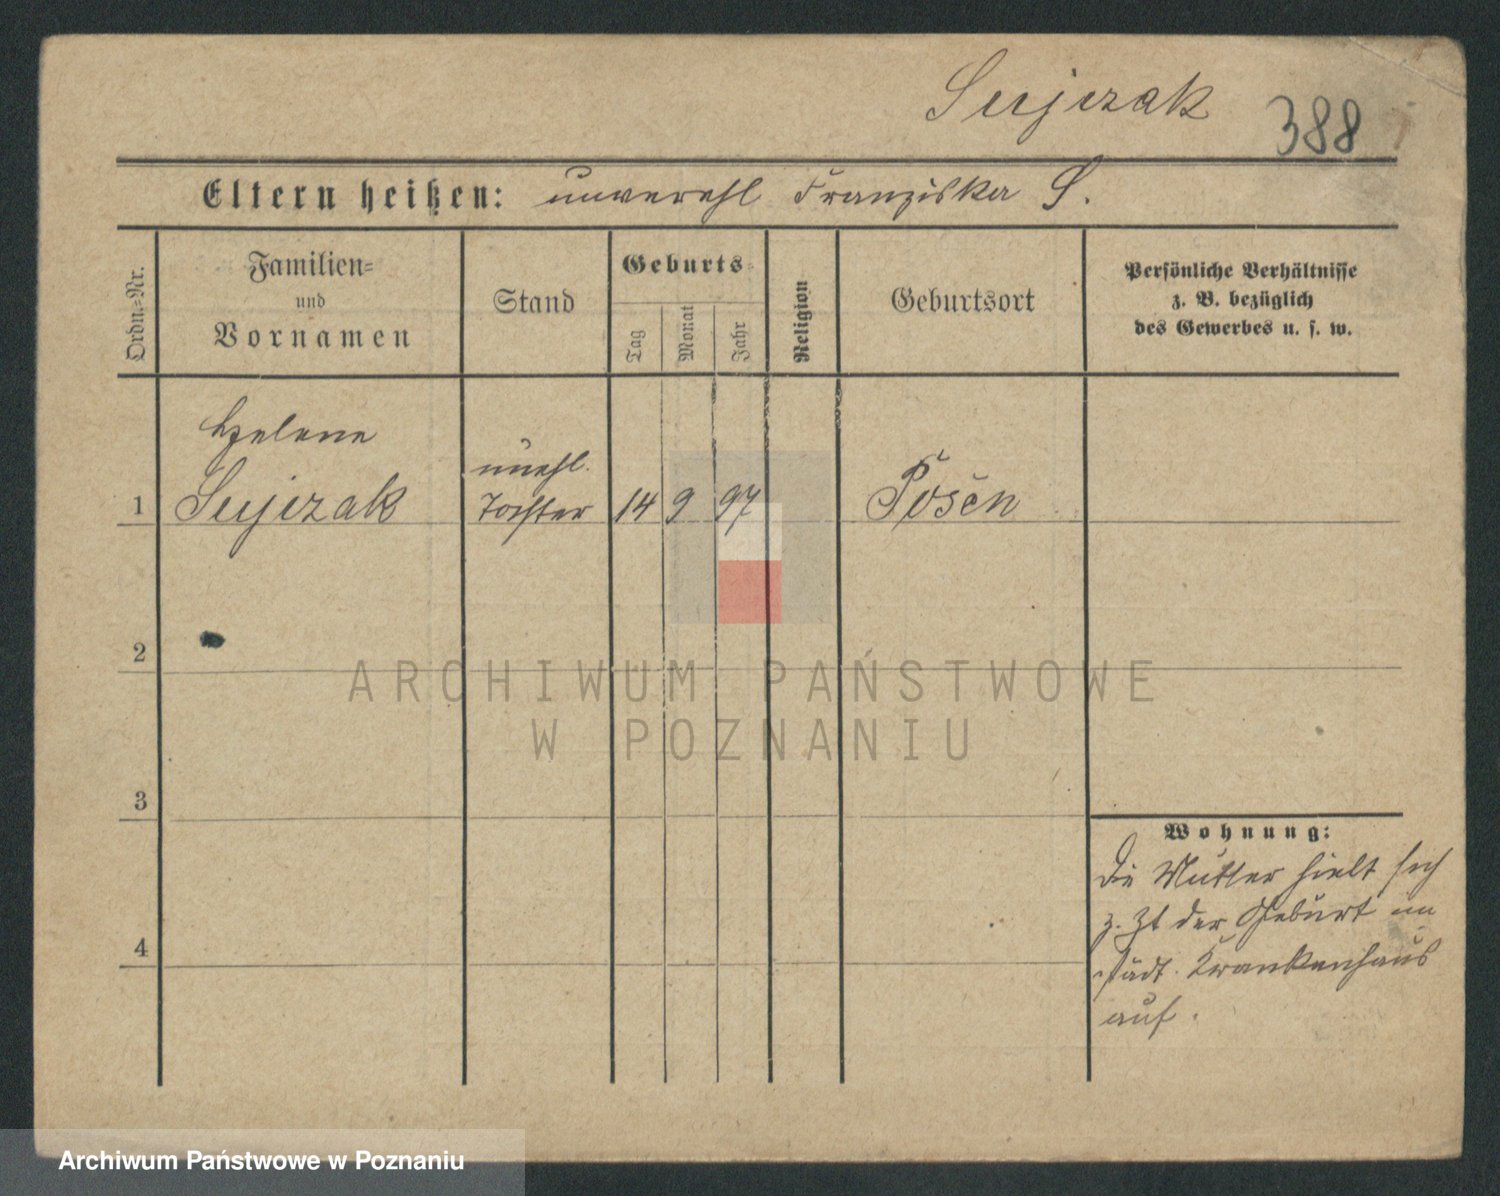 Sujczak
388
Eltern heißen: unverehl Franziska S.
Ordn.=Nr.
Familien=
und
Vornamen
Stand
Geburts=
Tag
Monat
Jahr
Religion
Geburtsort
Persönliche Verhältnisse
z. B. bezüglich
des Gewerbes u. s. w.
Helene
unehl.
1 Sujczak Tochter 14 9 97 Posen
2
3
4
Wohnung:
Die Mutter hielt sich
z. Zt der Geburt im
städt. Krankenhaus
auf.
ARCHIWUM PAŃSTWOWE
W POZNANIU
Archiwum Państwowe w Poznaniu